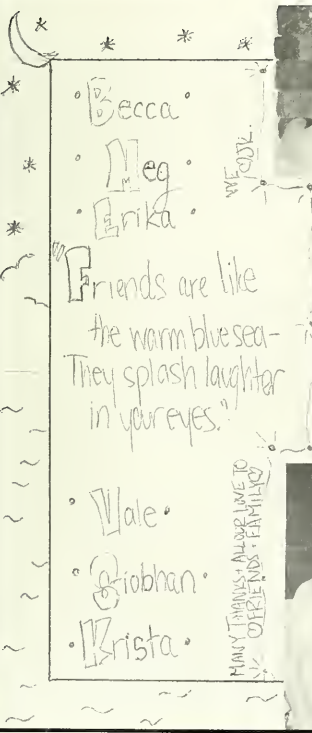 Becca
Meg
Erika
"Friends are like
the warm blue sea-
They splash laughter
in your eyes."
Vale
Siobhan
Krista
MANY THANKS + ALL OUR LOVE TO
FRIENDS + FAMILY